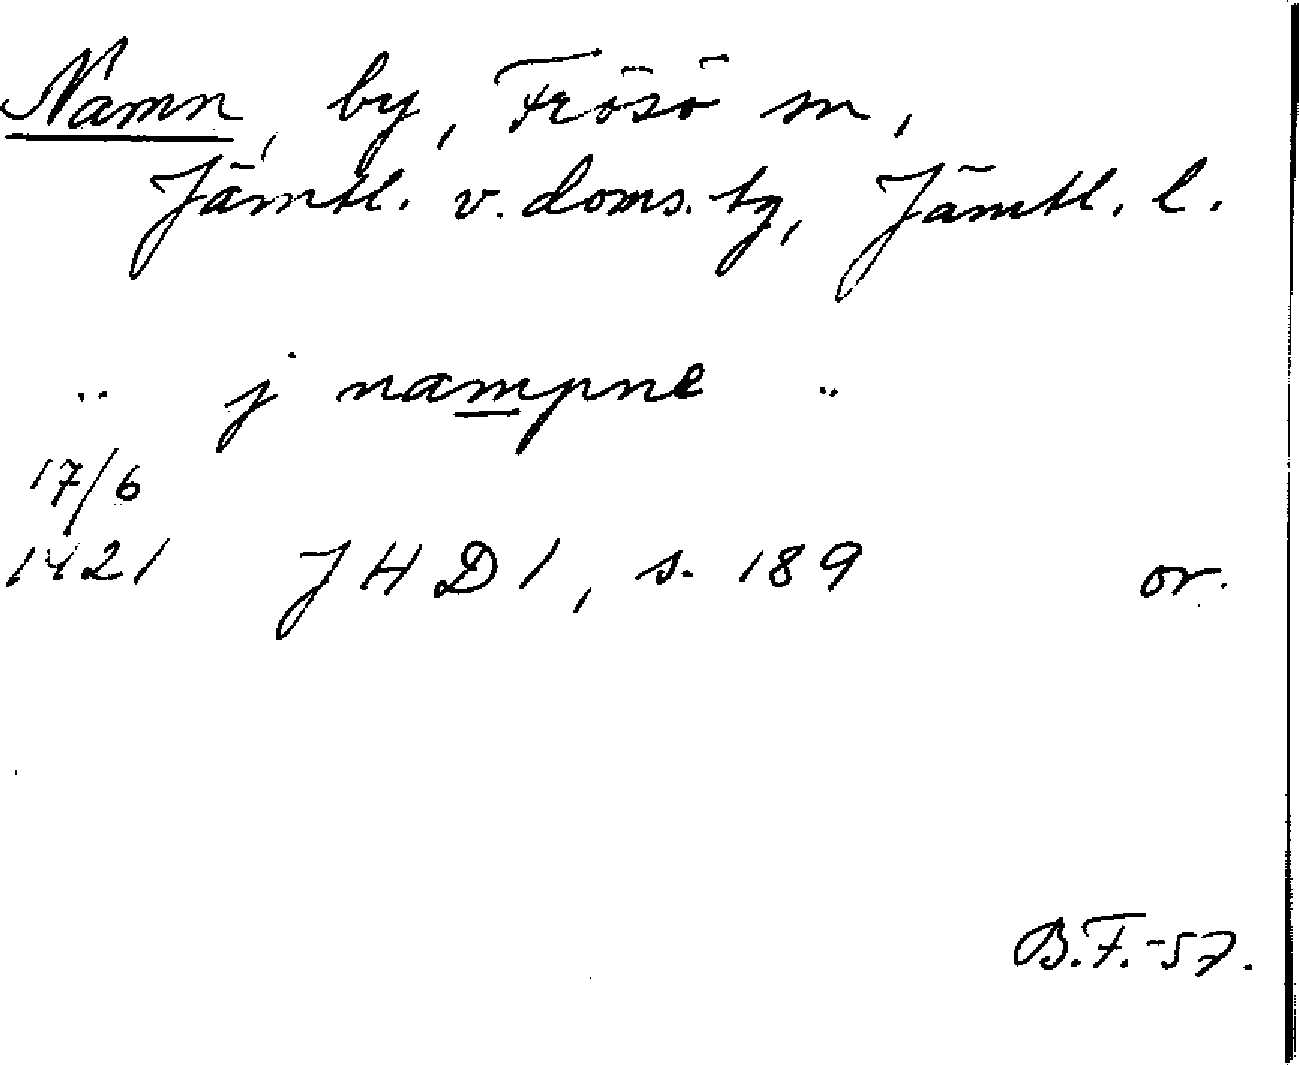 Namn, by, Frösö sn,
Jämtl. v. doms. tg, Jämtl. l.
.. j nampne ..
17/6
1421 JHD 1, s. 189 or.
B.F.-57.